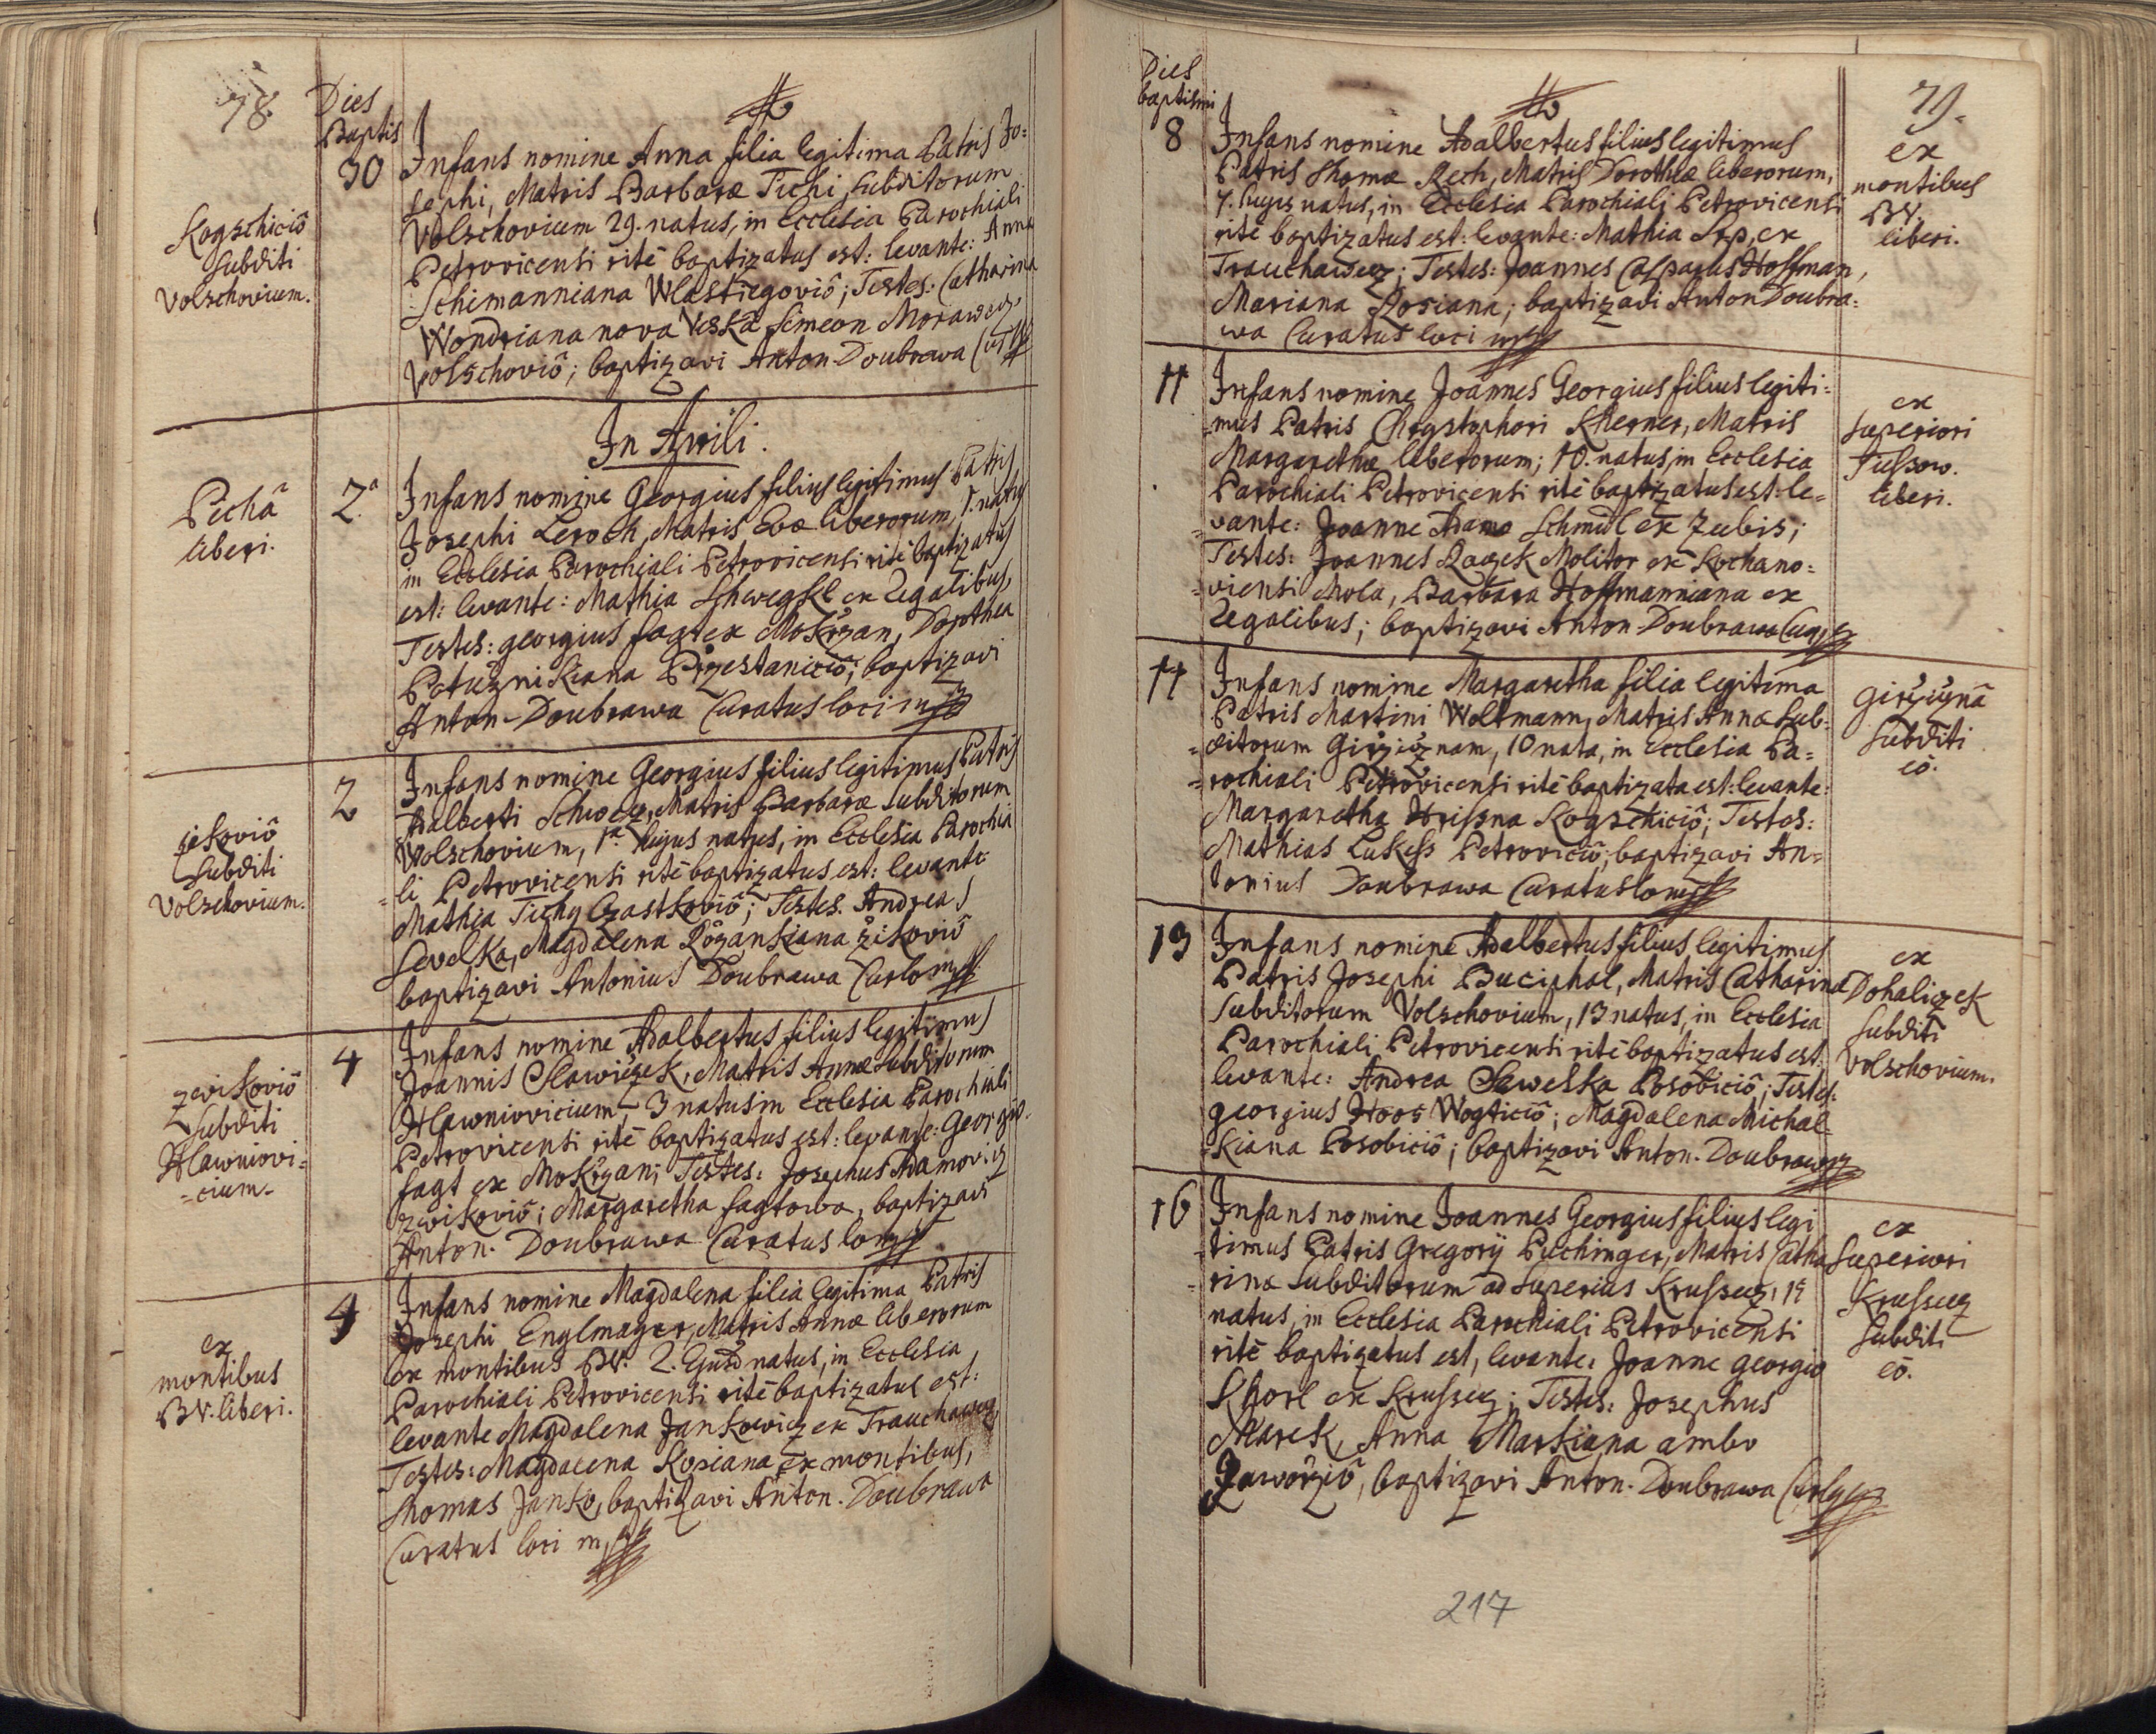 78.
Dies
Baptis
30
Kogschiciô
subditi
Volschovium.
Infans nomine Anna filia legitima Patris Jo=
sephi, Matris Barbaræ Tichi, subditorum
Volschovium 29. natus, in Ecclesia Parochiali
Petrovicensi ritê baptizatus est: levante: Anna
Schimanniana Wlastiegoviô; Testes: Catharina
Wondriana nova Veskâ Simeon Morawecz
Volschoviô; baptizavi Anton Doubrawa
In Aprili.
Pichâ
liberi.
2.a
Infans nomine Georgius filius legitimus Patris
Josephi Leroch, Matris Evæ liberorum, 1. natus
in Ecclesia Parochiali Petrovicensi ritê baptizatus
est: levante: Mathia Schwegkl ex Regalibus,
Testes: georgius fagt ex Mokržan, Dorothea
Potužnikiana Pržestaniciô; baptizavi
Anton Doubrawa Curatus loci mp
žikoviô
subditi
Volschovium.
2
Infans nomine Georgius filius legitimus Patris
Adalberti Schwecz, Matris Barbaræ subditorum
Volschovium, 1ma hujus natus, in Ecclesia Parochia
=li Petrovicensi ritê baptizatus est: levante
Mathia Tichy Czastkoviô; Testes. Andreas
Sevelka, Magdalena Rôzankiana žikoviô
baptizavi Antonius Doubrawa Curlo mp
zwikoviô
subditi
Hlawniovi=
=cium.
4
Infans nomine Adalbertus filius legitimus
Joannis Slawiček, Matris Annæ subditorum
Hlawniovicium, 3 natus in Ecclesia Parochiali
Petrovicensi ritê baptizatus est: levante: Georgio
fagt ex Mokržan; Testes: Josephus Adamovicz
zwikoviô; Margaretha fagtowa, baptizavi
Anton. Doubrawa Curatus lo mp
ex
montibus
BV. liberi.
4
Infans nomine Magdalena filia legitima Patris
Josephi Englmayer, Matris Annæ liberorum
ex montibus BV. 2. Ejusd natus, in Ecclesia
Parochiali Petrovicensi ritê baptizatus est:
levante Magdalena Jankowicz ex Trauchawecz
Testes: Magdalena Kosiana ex montibus,
Thomas Janko, baptizavi Anton. Doubrawa
Curatus loci mp
79.
Dies
baptismi
8
ex
montibus
BV.
liberi.
Infans nomine Adalbertus filius legitimus
Patris Thomæ Rech, Matris Dorotheæ liberorum,
7. hujus natus, in Ecclesia Parochiali Petrovicensi
ritê baptizatus est: levante: Mathia Srp, ex
Trauchawecz; Testes: Joannes Casparus Hoffman,
Mariana Rosiana; baptizavi Anton Doubra=
wa Curatus loci mp
11
ex
superiori
Tiesow.
liberi.
Infans nomine Joannes Georgius filius legiti=
=mus Patris Chrystophori Kherner, Matris
Margarethæ liberorum; 10. natus in Ecclesia
Parochiali Petrovicensi ritê baptizatus est: le=
=vante: Joanne Adamo Schmidl ex Zubis;
Testes: Joannes Razek Molitor ex Kochano=
=viensi Mola, Barbara Hoffmanniana ex
Regalibus; baptizavi Anton Doubrawa
11
Giržiczna
subditi
eô.
Infans nomine Margaretha filia legitima
Patris Martini Woltmann, Matris Annæ sub=
=ditorum Giržicznam, 10 nata, in Ecclesia Pa=
=rochiali Petrovicensi ritê baptizata est: levante:
Margaretha Hrissna Kogschiciô; Testes:
Mathias Lukess Petroviciô; baptizavi An=
tonius Doubrawa Curatus lo mp
13
ex
Dohaliczek
subditi
Volschovium.
Infans nomine Adalbertus filius legitimus
Patris Josephi Buciphal, Matris Catharinæ
subditorum Volschovium, 13 natus, in Ecclesia
Parochiali Petrovicensi ritê baptizatus est:
levante: Andrea Sawelka Posobiciô; Testes:
georgius Hoos Wogticiô; Magdalena Michal
=kiana Posobiciô; baptizavi Anton. Doubrawa
16
ex
Superiori
Krussecz
subditi
eô.
Infans nomine Joannes Georgius filius legi
=timus Patris Gregorij Puchinger, Matris Catha
=rinæ subditorum ad superius Krussecz, 15
natus, in Ecclesia Parochiali Petrovicensi
ritê baptizatus est, levante: Joanne georgio
Khorl ex Krussecz; Testes: Josephus
Marek, Anna Markiana ambo
Jaworžiô, baptizavi Anton. Doubrawa
217